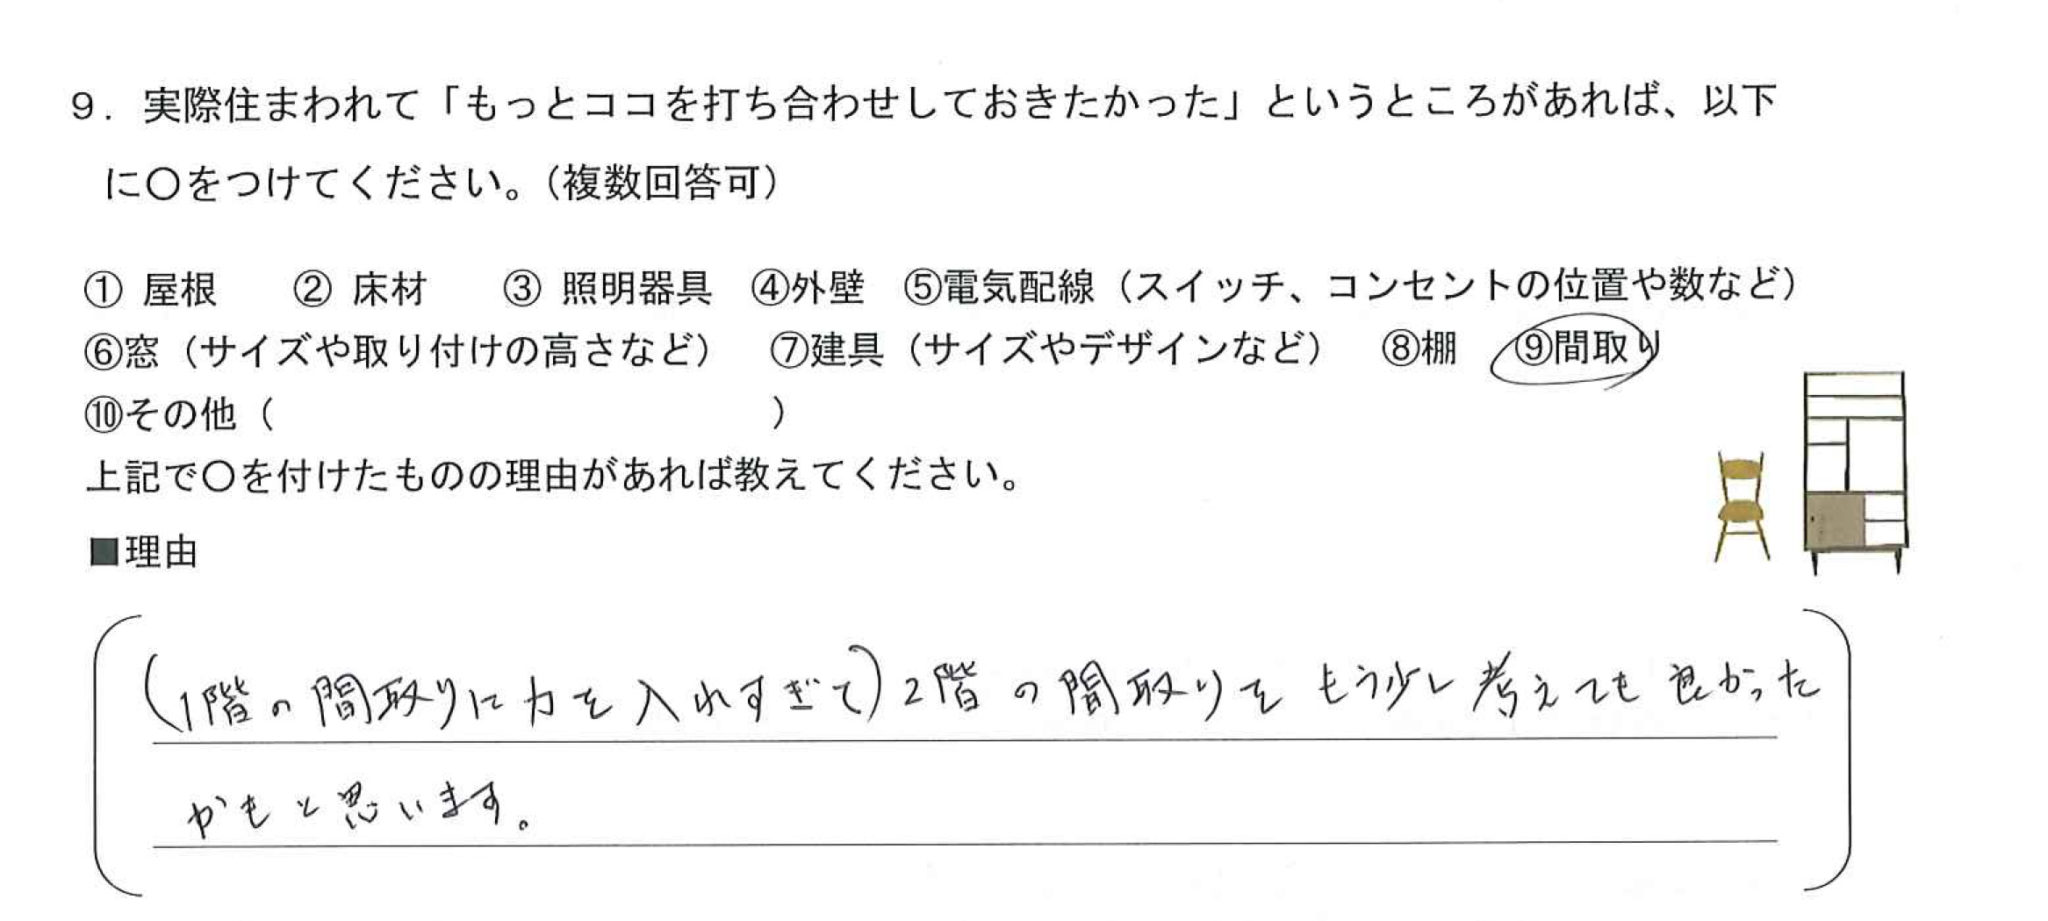 9．実際住まわれて「もっとココを打ち合わせしておきたかった」というところがあれば、以下
に〇をつけてください。（複数回答可）
① 屋根　② 床材　③ 照明器具　④外壁　⑤電気配線（スイッチ、コンセントの位置や数など）
⑥窓（サイズや取り付けの高さなど）　⑦建具（サイズやデザインなど）　⑧棚　⑨間取り
⑩その他（　　　　　　　　　　　　　）
上記で〇を付けたものの理由があれば教えてください。
■理由
（1階の間取りに力を入れすぎて）2階の間取りをもう少し考えても良かった
かもと思います。